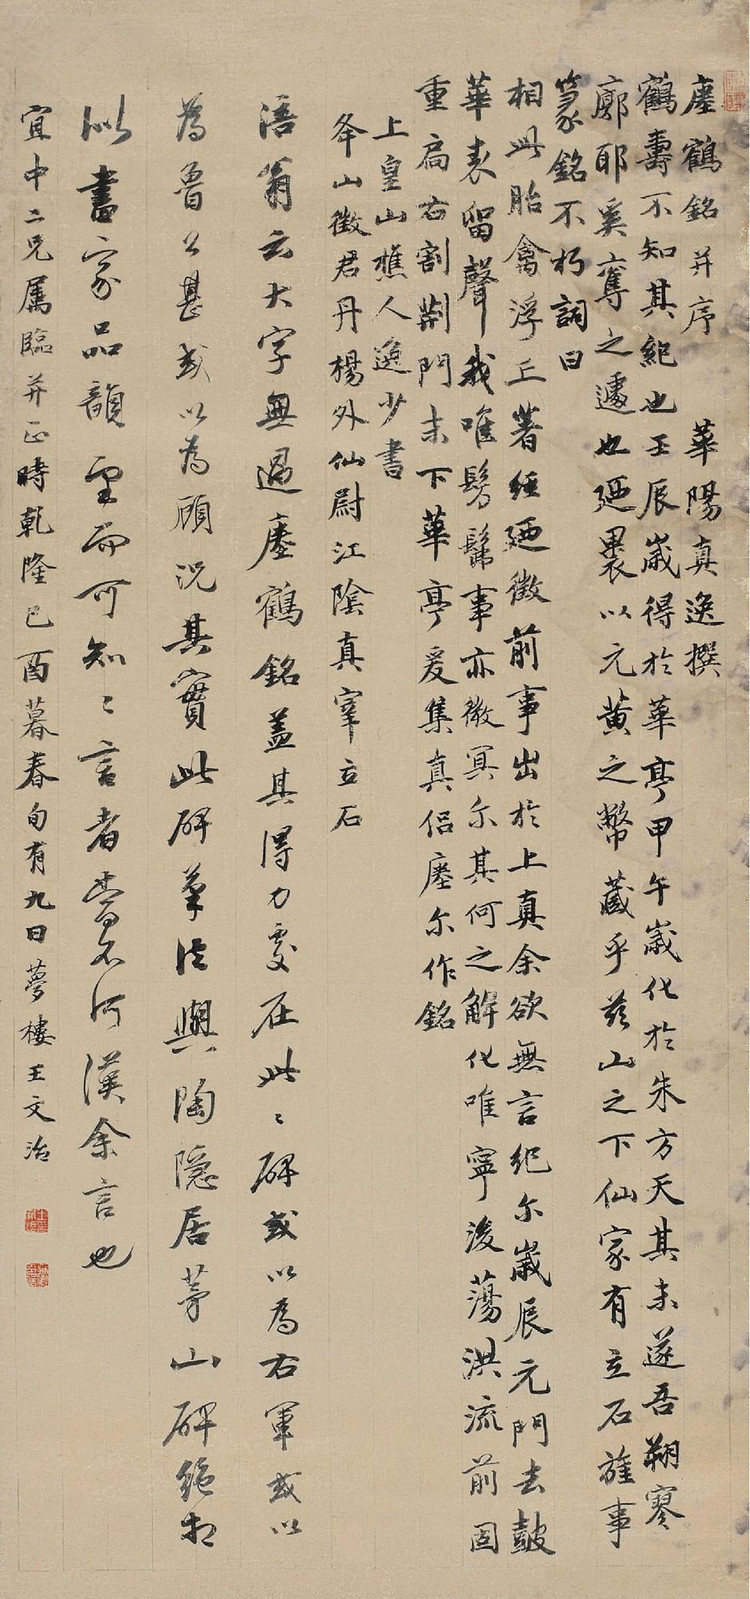 瘞鶴銘并序 華陽真逸撰
鶴壽不知其紀也壬辰歲得於華亭甲午歲化於朱方天其未遂吾翔寥
廓耶奚奪之遽也廼裹以元黃之幣藏乎茲山之下仙家有立石旌事
篆銘不朽詞曰
相此胎禽浮丘著經廼徵前事出於上真余欲無言紀尔歲辰元門去鼓
華表留聲我唯髣髴事亦微冥尔其何之解化唯寧後蕩洪流前固
重扃右割荆門未下華亭爰集真侶瘞尔作銘
上皇山樵人逸少書
夅山徵君丹楊外仙尉江陰真宰立石
涪翁云大字無過瘞鶴銘蓋其得力處在此〻碑或以為右軍或以
為魯公甚或以為顧況其實此碑筆法與陶隱居茅山碑絕相
似書家品韻望而可知〻言者當不河漢余言也
宜中二兄屬臨并正時乾隆己酉暮春旬有九日夢樓王文治